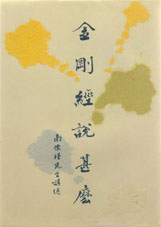 金剛經說甚麼
南懷瑾先生講述